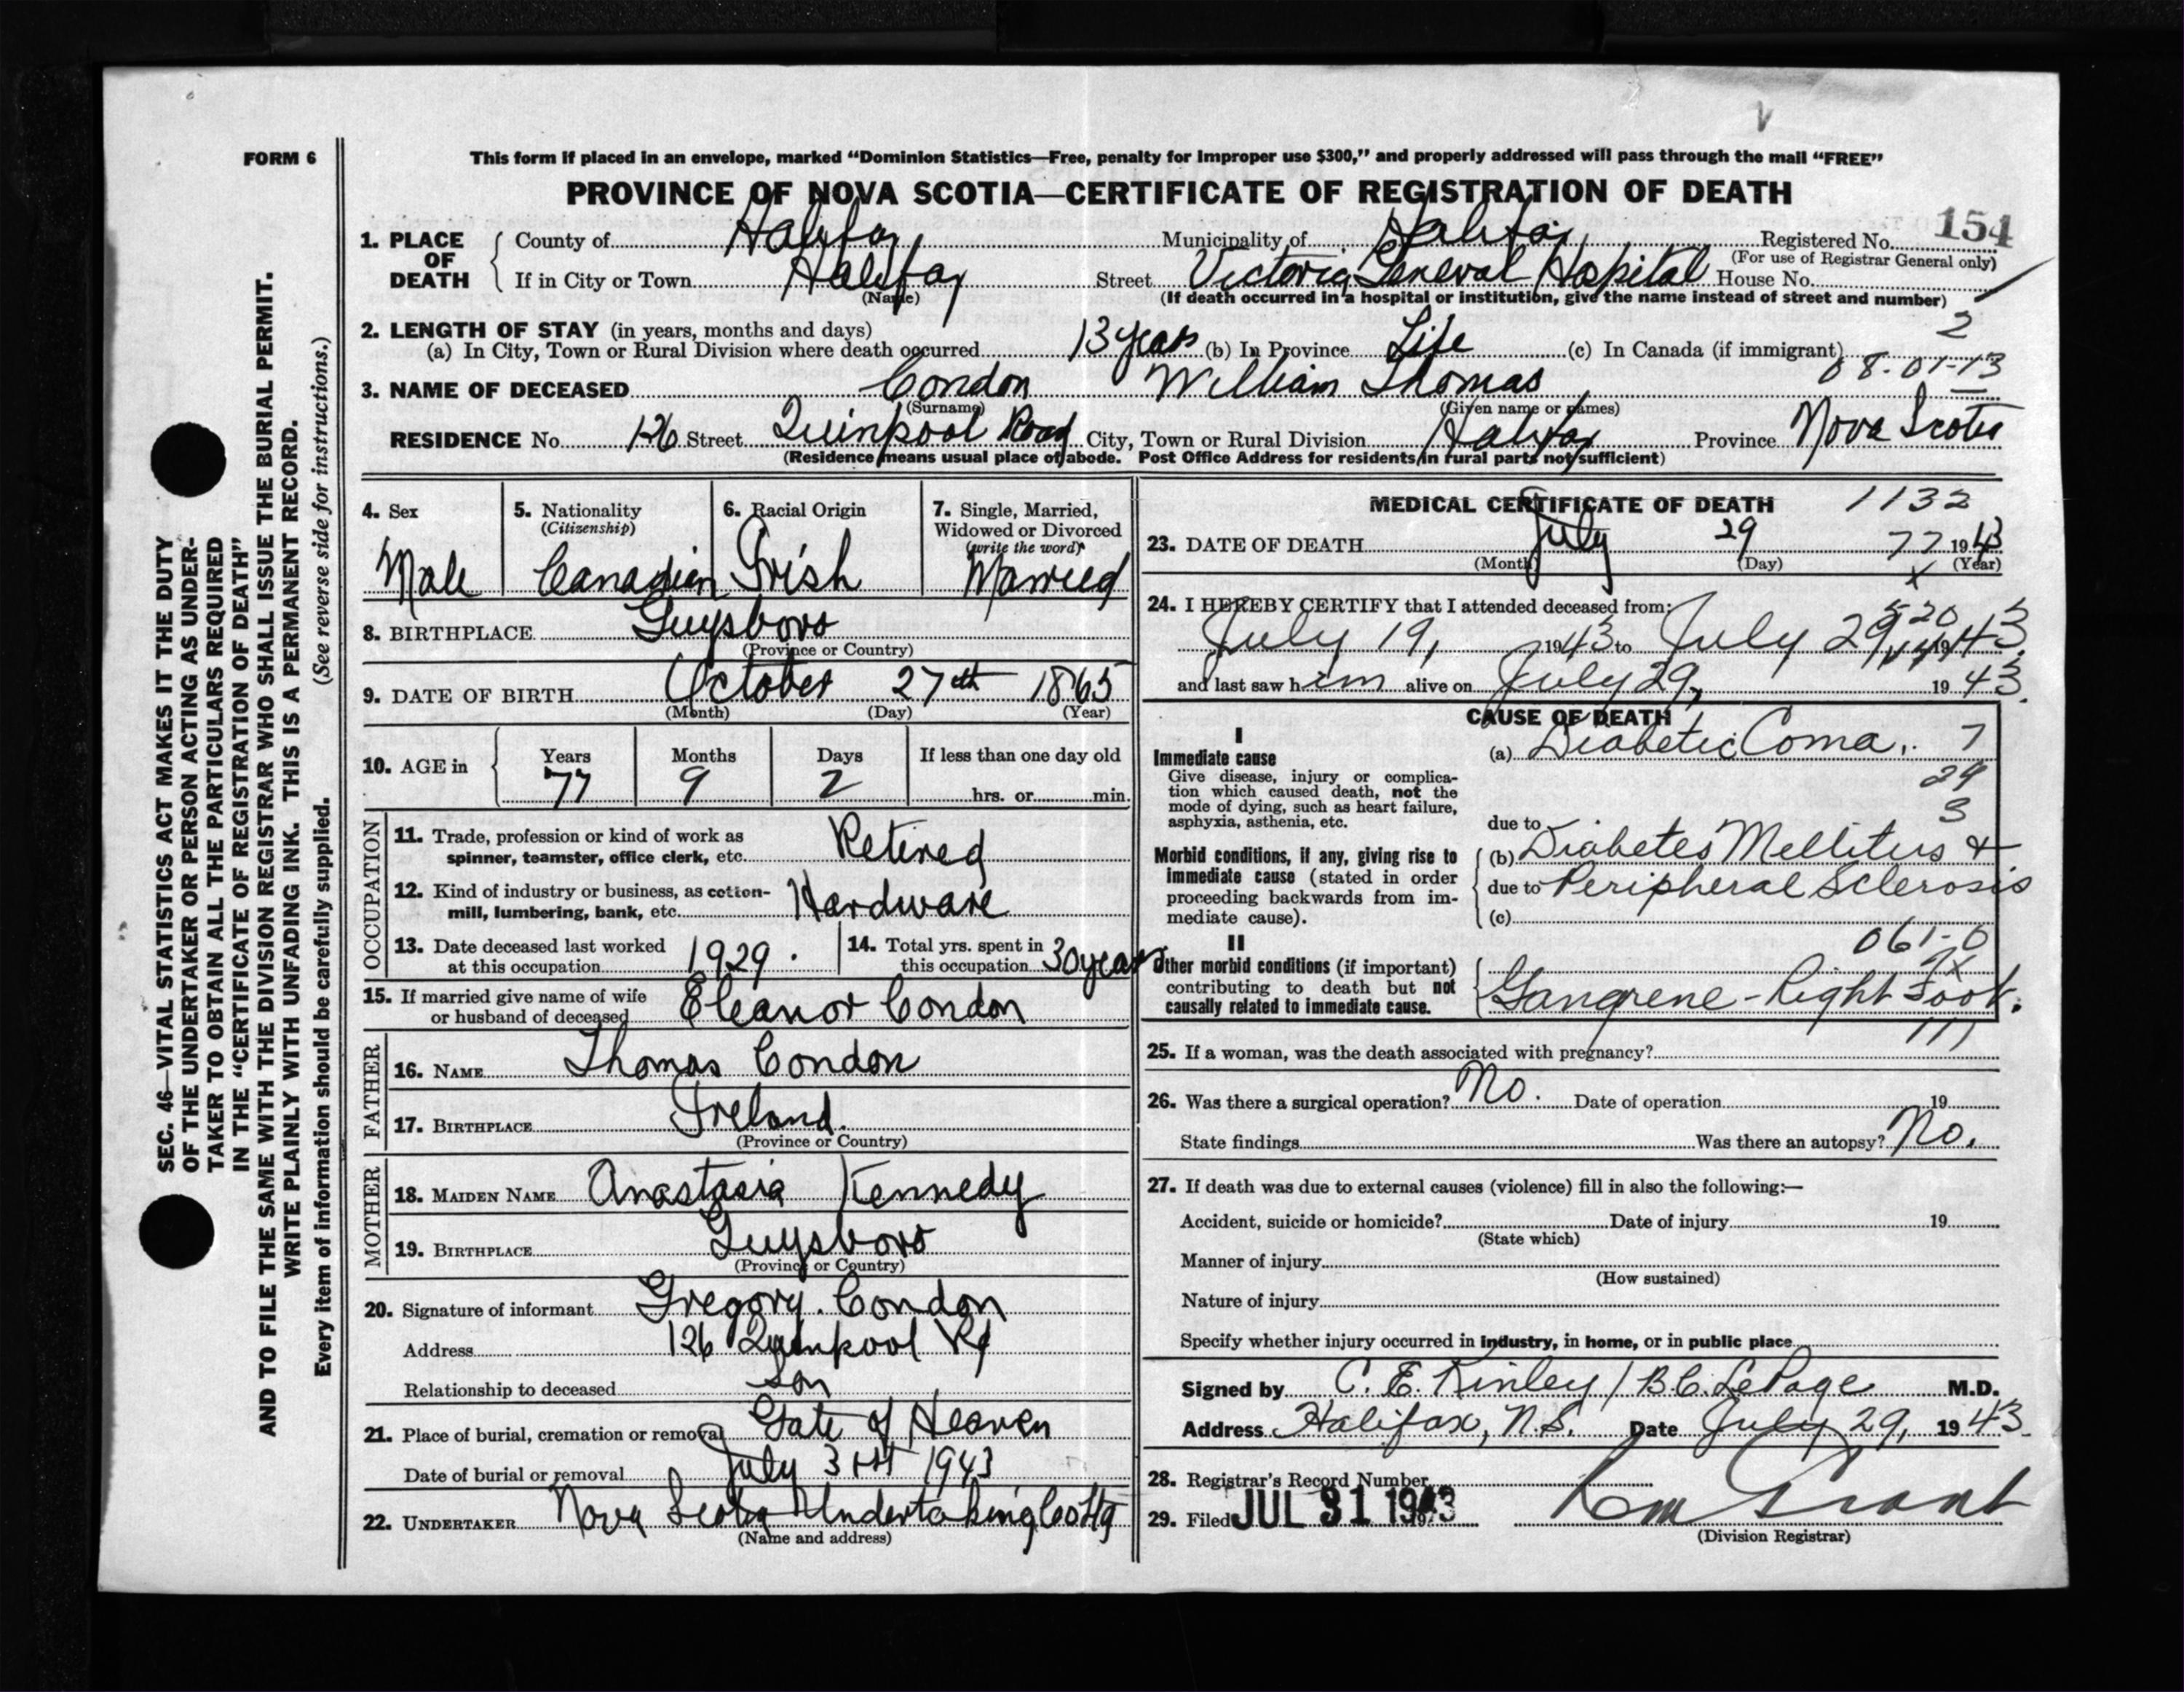 FORM 6
This form if placed in an envelope, marked “Dominion Statistics—Free, penalty for improper use $300,” and properly addressed will pass through the mail “FREE”
PROVINCE OF NOVA SCOTIA—CERTIFICATE OF REGISTRATION OF DEATH
154
1. PLACE OF DEATH County of Halifax Municipality of Halifax Registered No.
(For use of Registrar General only)
If in City or Town Halifax Street Victoria General Hospital House No.
(Name) (If death occurred in a hospital or institution, give the name instead of street and number)
2
2. LENGTH OF STAY (in years, months and days)
(a) In City, Town or Rural Division where death occurred 13 years (b) In Province Life (c) In Canada (if immigrant)
08-01-13
3. NAME OF DECEASED Condon William Thomas
(Surname) (Given name or names)
RESIDENCE No. 126 Street Quinpool Road City, Town or Rural Division Halifax Province Nova Scotia
(Residence means usual place of abode. Post Office Address for residents in rural parts not sufficient)
4. Sex 5. Nationality 6. Racial Origin 7. Single, Married,
(Citizenship) Widowed or Divorced
(write the word)
Male Canadian Irish Married
8. BIRTHPLACE Guysboro
(Province or Country)
9. DATE OF BIRTH October 27th 1865
(Month) (Day) (Year)
10. AGE in Years Months Days If less than one day old
77 9 2 hrs. or min.
OCCUPATION
11. Trade, profession or kind of work as
spinner, teamster, office clerk, etc. Retired
12. Kind of industry or business, as cotton-
mill, lumbering, bank, etc. Hardware
13. Date deceased last worked
at this occupation 1929.
14. Total yrs. spent in
this occupation 30 years
15. If married give name of wife
or husband of deceased Eleanor Condon
FATHER
16. NAME Thomas Condon
17. BIRTHPLACE Ireland.
(Province or Country)
MOTHER
18. MAIDEN NAME Anastasia Kennedy
19. BIRTHPLACE Guysboro
(Province or Country)
20. Signature of informant Gregory. Condon
Address 126 Quinpool Rd
Relationship to deceased Son
21. Place of burial, cremation or removal Gate of Heaven
Date of burial or removal July 31st 1943
22. UNDERTAKER Nova Scotia Undertaking Co Ltd
(Name and address)
MEDICAL CERTIFICATE OF DEATH 1132
23. DATE OF DEATH July 29 77 1943
(Month) (Day) (Year)
x
24. I HEREBY CERTIFY that I attended deceased from:
July 19, 1943 to July 29, 1943
and last saw him alive on July 29, 1943.
CAUSE OF DEATH
I
Immediate cause
Give disease, injury or complica-
tion which caused death, not the
mode of dying, such as heart failure,
asphyxia, asthenia, etc.
(a) Diabetic Coma. 7
29
3
due to
Morbid conditions, if any, giving rise to
immediate cause (stated in order
proceeding backwards from im-
mediate cause).
(b) Diabetes Mellitus &
due to Peripheral Sclerosis
(c)
061-0
II
Other morbid conditions (if important)
contributing to death but not
causally related to immediate cause.
Gangrene - Right Foot.
25. If a woman, was the death associated with pregnancy?
26. Was there a surgical operation? No. Date of operation 19
State findings Was there an autopsy? No.
27. If death was due to external causes (violence) fill in also the following:—
Accident, suicide or homicide? Date of injury 19
(State which)
Manner of injury
(How sustained)
Nature of injury
Specify whether injury occurred in industry, in home, or in public place
Signed by C. E. Kinley / B.C. LePage M.D.
Address Halifax, N.S. Date July 29, 1943.
28. Registrar's Record Number
29. Filed JUL 31 1943 Grant
(Division Registrar)
SEC. 46—VITAL STATISTICS ACT MAKES IT THE DUTY
OF THE UNDERTAKER OR PERSON ACTING AS UNDER-
TAKER TO OBTAIN ALL THE PARTICULARS REQUIRED
IN THE “CERTIFICATE OF REGISTRATION OF DEATH”
AND TO FILE THE SAME WITH THE DIVISION REGISTRAR WHO SHALL ISSUE THE BURIAL PERMIT.
WRITE PLAINLY WITH UNFADING INK. THIS IS A PERMANENT RECORD.
Every item of information should be carefully supplied. (See reverse side for instructions.)